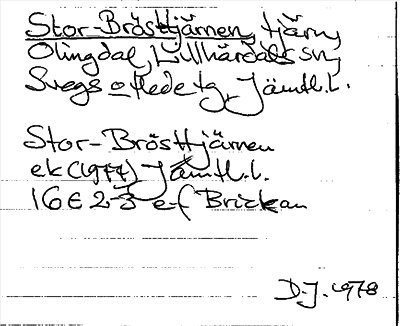 Stor-Brösttjärnen, tjärn,
Olingdal, Lillhärdals sn,
Svegs o Hede tg, Jämtl.l.
Stor-Brösttjärnen
ek (1977) Jämtl.l.
16E 2-3 e-f Brickan
D.J. 1978